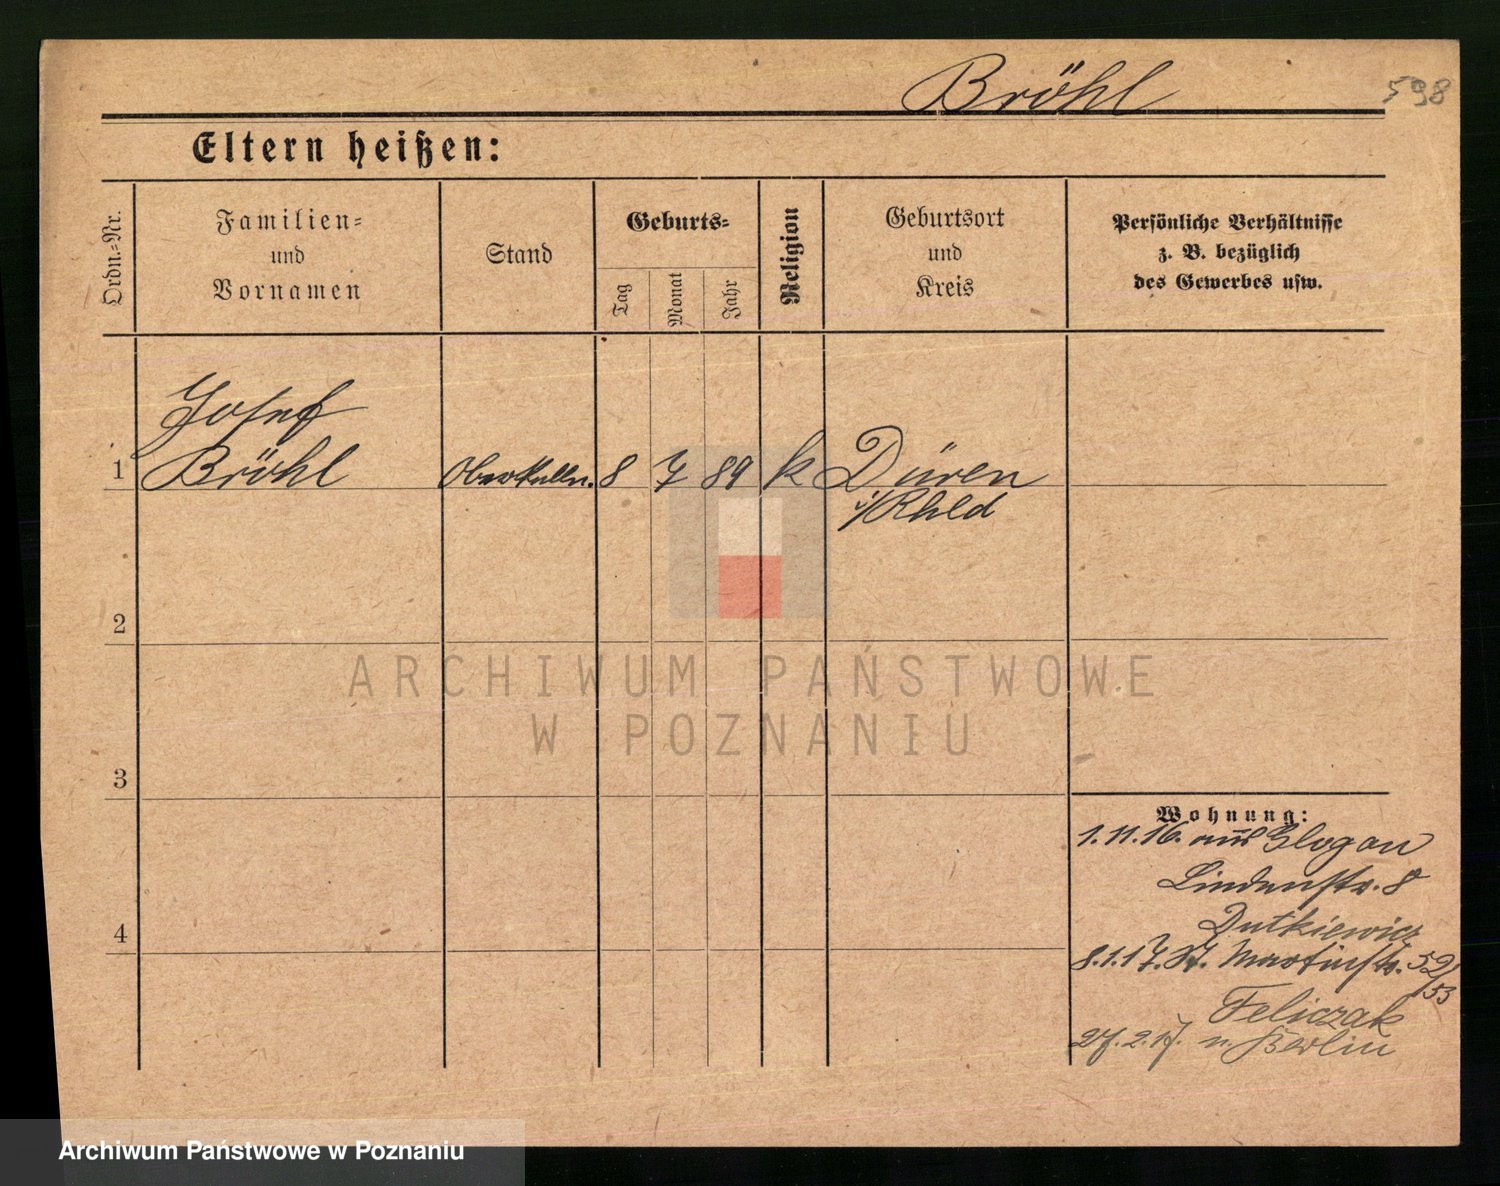 Bröhl
598
Eltern heißen:
Ordn.=Nr.
Familien=
und
Vornamen
Stand
Geburts=
Tag
Monat
Jahr
Religion
Geburtsort
und
Kreis
Persönliche Verhältnisse
z. B. bezüglich
des Gewerbes usw.
Josef
1 Bröhl Oberkelln. 8 7 89 k Düren
i/Rhld
2
3
4
Wohnung:
1.11.16. aus Glogau
Lindenstr. 8
Dutkiewicz
8.1.17. St. Martinstr. 52/53
Feliczak
27.2.17. n. Berlin
ARCHIWUM PAŃSTWOWE
W POZNANIU
Archiwum Państwowe w Poznaniu